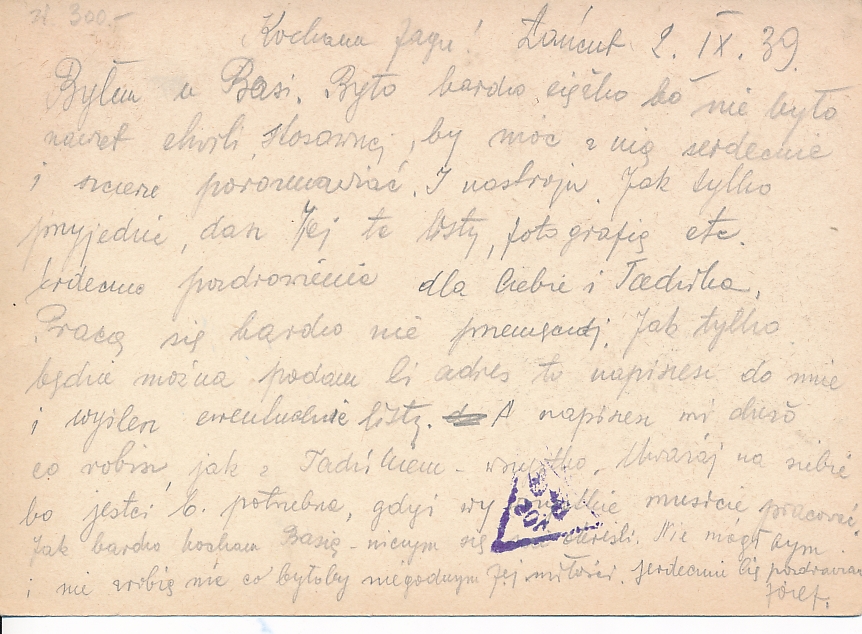 zł 300.-
Kochana Jago! Łańcut 2. IX. 39.
Byłem u Basi. Było bardzo ciężko bo nie było
nawet chwili stosownej, by móc z nią serdecznie
i szczerze porozmawiać. I nastroju. Jak tylko
przyjedzie, dasz Jej te listy, fotografię etc.
Serdeczne pozdrowienia dla Ciebie i Tadzika.
Pracą się bardzo nie przemęczaj. Jak tylko
będzie można podam Ci adres to napiszesz do mnie
i wyślesz ewentualnie listy. A napiszesz mi dużo
co robisz, jak z Tadzikiem - wszystko. Uważaj na siebie
bo jesteś b. potrzebna, gdyż wy wszystkie musicie pracować.
Jak bardzo kocham Basię - niczym się nie określi. Nie mógłbym
i nie zrobię nic co byłoby niegodnym Jej miłości. Serdecznie Cię pozdrawiam
Józef.